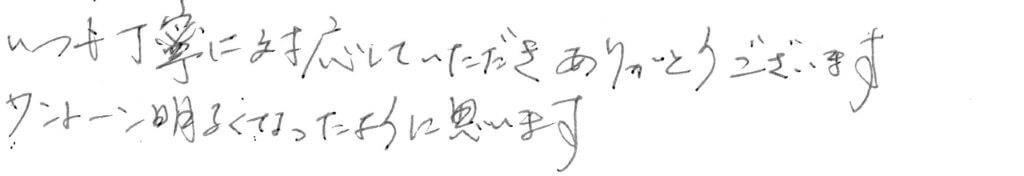 いつも丁寧に対応していただきありがとうございます
ワントーン明るくなったように思います